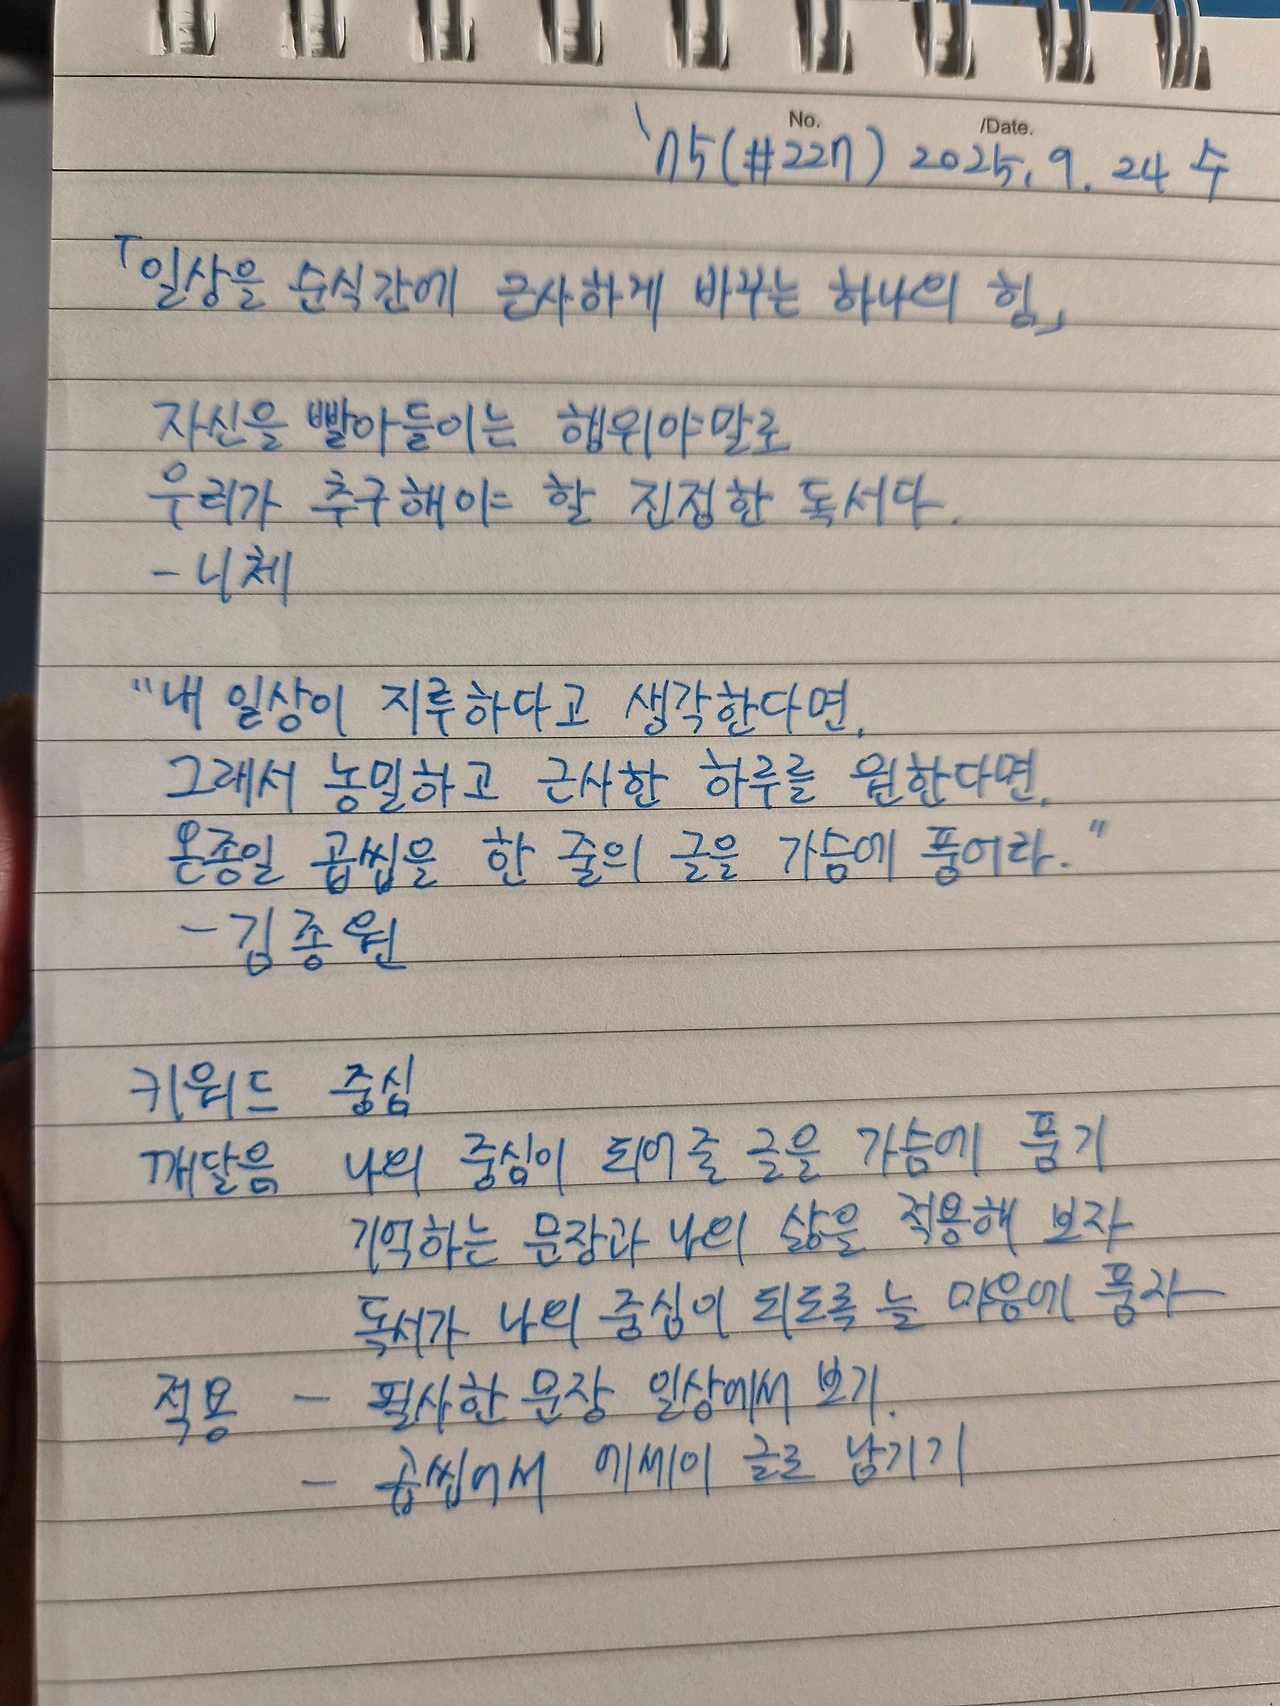 No. /Date.
'75(#227) 2025. 9. 24 수
「일상을 순식간에 근사하게 바꾸는 하나의 힘」
자신을 빨아들이는 행위야말로
우리가 추구해야 할 진정한 독서다.
- 니체
"내 일상이 지루하다고 생각한다면,
그래서 농밀하고 근사한 하루를 원한다면,
온종일 곱씹을 한 줄의 글을 가슴에 품어라."
- 김종원
키워드 중심
깨달음 나의 중심이 되어줄 글을 가슴에 품기
기억하는 문장과 나의 삶을 적용해 보자
독서가 나의 중심이 되도록 늘 마음에 품자
적용 - 필사한 문장 일상에서 보기.
- 곱씹어서 에세이 글로 남기기